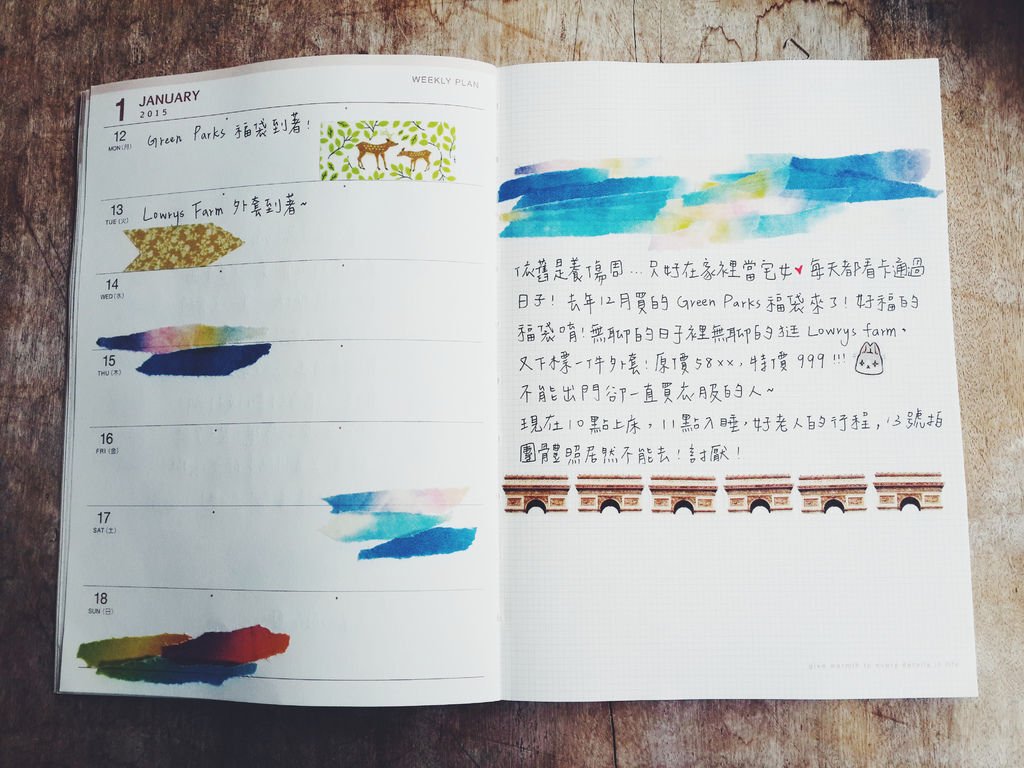 WEEKLY PLAN
1 JANUARY
2015
12 Green Parks 福袋到著!
MON(月)
13 Lowrys Farm 外套到著~
TUE(火)
14
WED(水)
15
THU(木)
16
FRI(金)
17
SAT(土)
18
SUN(日)
依舊是養傷周...只好在家裡當宅女♥每天都看卡通過
日子!去年12月買的 Green Parks 福袋來了!好福的
福袋唷!無聊的日子裡無聊的逛 Lowrys farm。
又下標一件外套!原價58xx,特價999!!!
不能出門卻一直買衣服的人~
現在10點上床,11點入睡,好老人的行程,13號拍
團體照居然不能去!討厭!
give warmth to every details in life